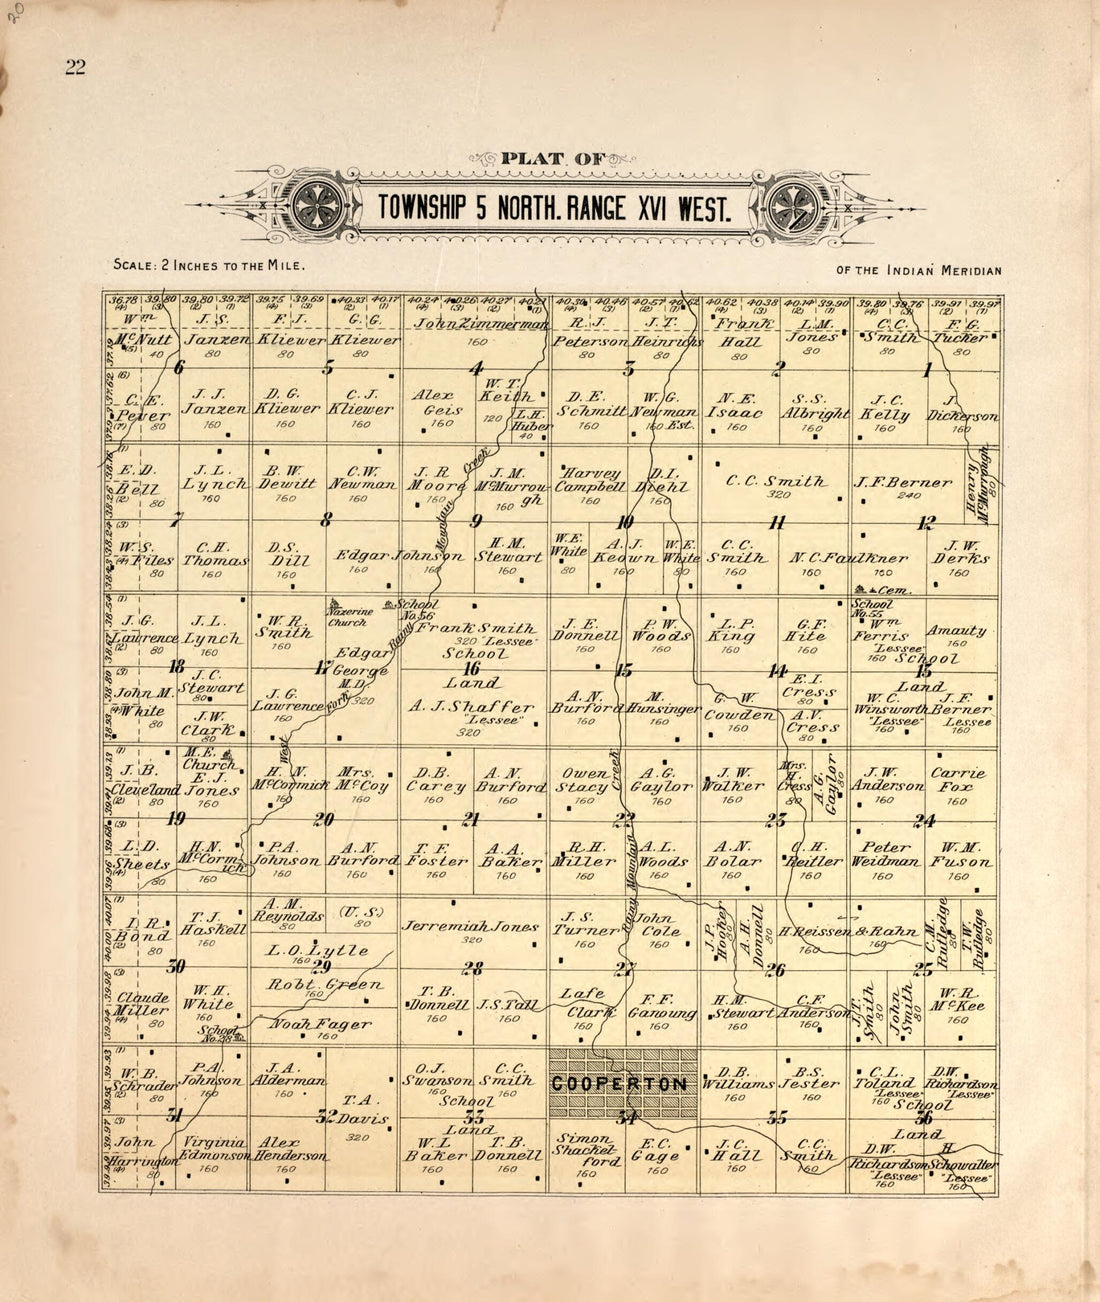 20
22
PLAT OF
TOWNSHIP 5 NORTH. RANGE XVI WEST.
SCALE: 2 INCHES TO THE MILE.
OF THE INDIAN MERIDIAN
36.78 39.80 39.80 39.72 39.75 39.69 40.33 40.17 40.24 40.26 40.27 40.21 40.36 40.46 40.57 40.62 40.62 40.38 40.14 39.90 39.80 39.76 39.91 39.97
Wm McNutt 40
J. S. Janzen 80
F. J. Kliewer 80
G. G. Kliewer 80
John Zimmerman 160
R. J. Peterson 80
J. T. Heinrichs 80
Frank Hall 80
L.M. Jones 80
C.C. Smith 80
F. G. Tucker 80
6 5 4 3 2 1
C. E. Pever 80
J. J. Janzen 160
D. G. Kliewer 160
C. J. Kliewer 160
Alex Geis 160
W. T. Keith 120
L.H. Huber 40
D. E. Schmitt 160
W. G. Newman Est. 160
N. E. Isaac 160
S. S. Albright 160
J. C. Kelly 160
J. Dickerson 160
E. D. Bell 80
J. L. Lynch 160
B. W. Dewitt 160
C.W. Newman 160
J. R. Moore 160
Creek
J. M. McMurrough 160
Harvey Campbell 160
D. I. Diehl 160
C. C. Smith 320
J. F. Berner 240
Henry McMurrough 80
7 8 9 10 11 12
Mountain
W. S. Files 80
C. H. Thomas 160
D. S. Dill 160
Edgar Johnson 160 160
H. M. Stewart 160
W.E. White 80
A. J. Keown 160
W. E. White 80
C. C. Smith 160
N. C. Faulkner 160 160
J. W. Derks 160
Cem.
J. G. Lawrence 80
J. L. Lynch 160
W. R. Smith 160
Nazerine Church
School No. 56
Rainy
Frank Smith 320 "Lessee"
School
J. E. Donnell 160
P. W. Woods 160
L. P. King 160
G. F. Hite 160
School No. 55
Wm Ferris "Lessee" 160
Amauty 160
School
18 17 16 15 14 13
Edgar George M.D. 320
Fork
Land
John M. White 80
J. C. Stewart 80
J. W. Clark 80
J. G. Lawrence 160
A. J. Shaffer "Lessee" 320
A. N. Burford 160
M. Hunsinger 160
G. W. Cowden 160
E. I. Cress 80
A. V. Cress 80
Land
W. C. Winsworth "Lessee" 160
J. F. Berner Lessee 160
J. B. Cleveland 80
M. E. Church
E. J. Jones 160
West
H. N. McCormick 160
Mrs. McCoy 160
D. B. Carey 160
A. N. Burford 160
Owen Stacy 160
Creek
A. G. Gaylor 160
J. W. Walker 160
Mrs. H. Cress 80
A. G. Gaylor 80
J. W. Anderson 160
Carrie Fox 160
19 20 21 22 23 24
L. D. Sheets 80
H.N. McCormick 160
P.A. Johnson 160
A. N. Burford 160
T. F. Foster 160
A. A. Baker 160
R. H. Miller 160
Rainy Mountain
A. L. Woods 160
A. N. Bolar 160
C. H. Reitler 160
Peter Weidman 160
W. M. Fuson 160
I. R. Bond 80
T. J. Haskell 160
A. M. Reynolds 80
(U. S.) 80
L. O. Lytle 160
Jeremiah Jones 320
J. S. Turner 160
John Cole 160
J. P. Hooker 80
A. H. Donnell 80
H. Reissen & Rahn 160 160
C. M. Rutledge 80
T. W. Rutledge 80
30 29 28 27 26 25
Claude Miller 80
W. H. White 160
School No. 28
Robt. Green 160
Noah Fager 160
T. B. Donnell 160
J. S. Tall 160
Lafe Clark 160
F. F. Ganoung 160
H. M. Stewart 160
C. F. Anderson 160
J. T. Smith 80
John Smith 80
W. R. McKee 160
W. B. Schrader 80
P. A. Johnson 160
J. A. Alderman 160
T. A. Davis 320
O. J. Swanson 160
C. C. Smith 160
School
COOPERTON
D. B. Williams 160
B. S. Jester 160
C. L. Toland "Lessee" 160
D.W. Richardson "Lessee" 160
School
31 32 33 34 35 36
John Harrington 80
Virginia Edmonson 160
Alex Henderson 160
Land
W. I. Baker 160
T. B. Donnell 160
Simon Shackelford 160
E. C. Gage 160
J. C. Hall 160
C. C. Smith 160
Land
D.W. Richardson "Lessee" 160
H Schowalter "Lessee" 160